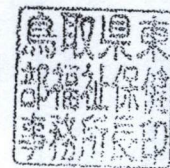 鳥取県東
部福祉保健
事務所長印